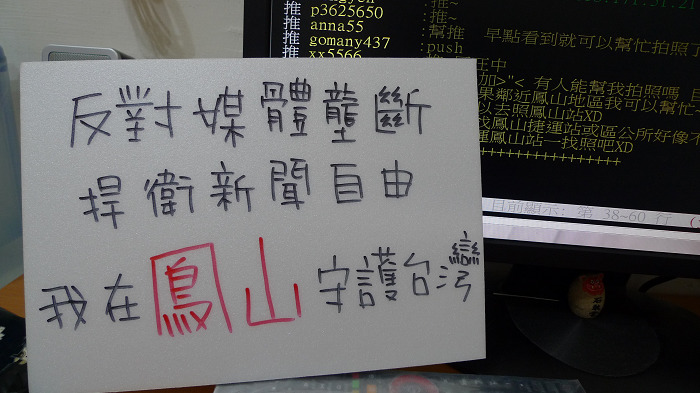 反對媒體壟斷
捍衛新聞自由
我在鳳山守護台灣
推 p3625650 :推~
推 anna55
推 gomany437 :幫推 早點看到就可以幫忙拍照了
推 xx5566 :push
王中
加>"< 有人能幫我拍照嗎
果鄰近鳳山地區我可以幫忙~
以去照鳳山站XD
找鳳山捷運站或區公所好像不
運鳳山站一找照吧XD
++++++++++++++++
目前顯示: 第 38~60 行